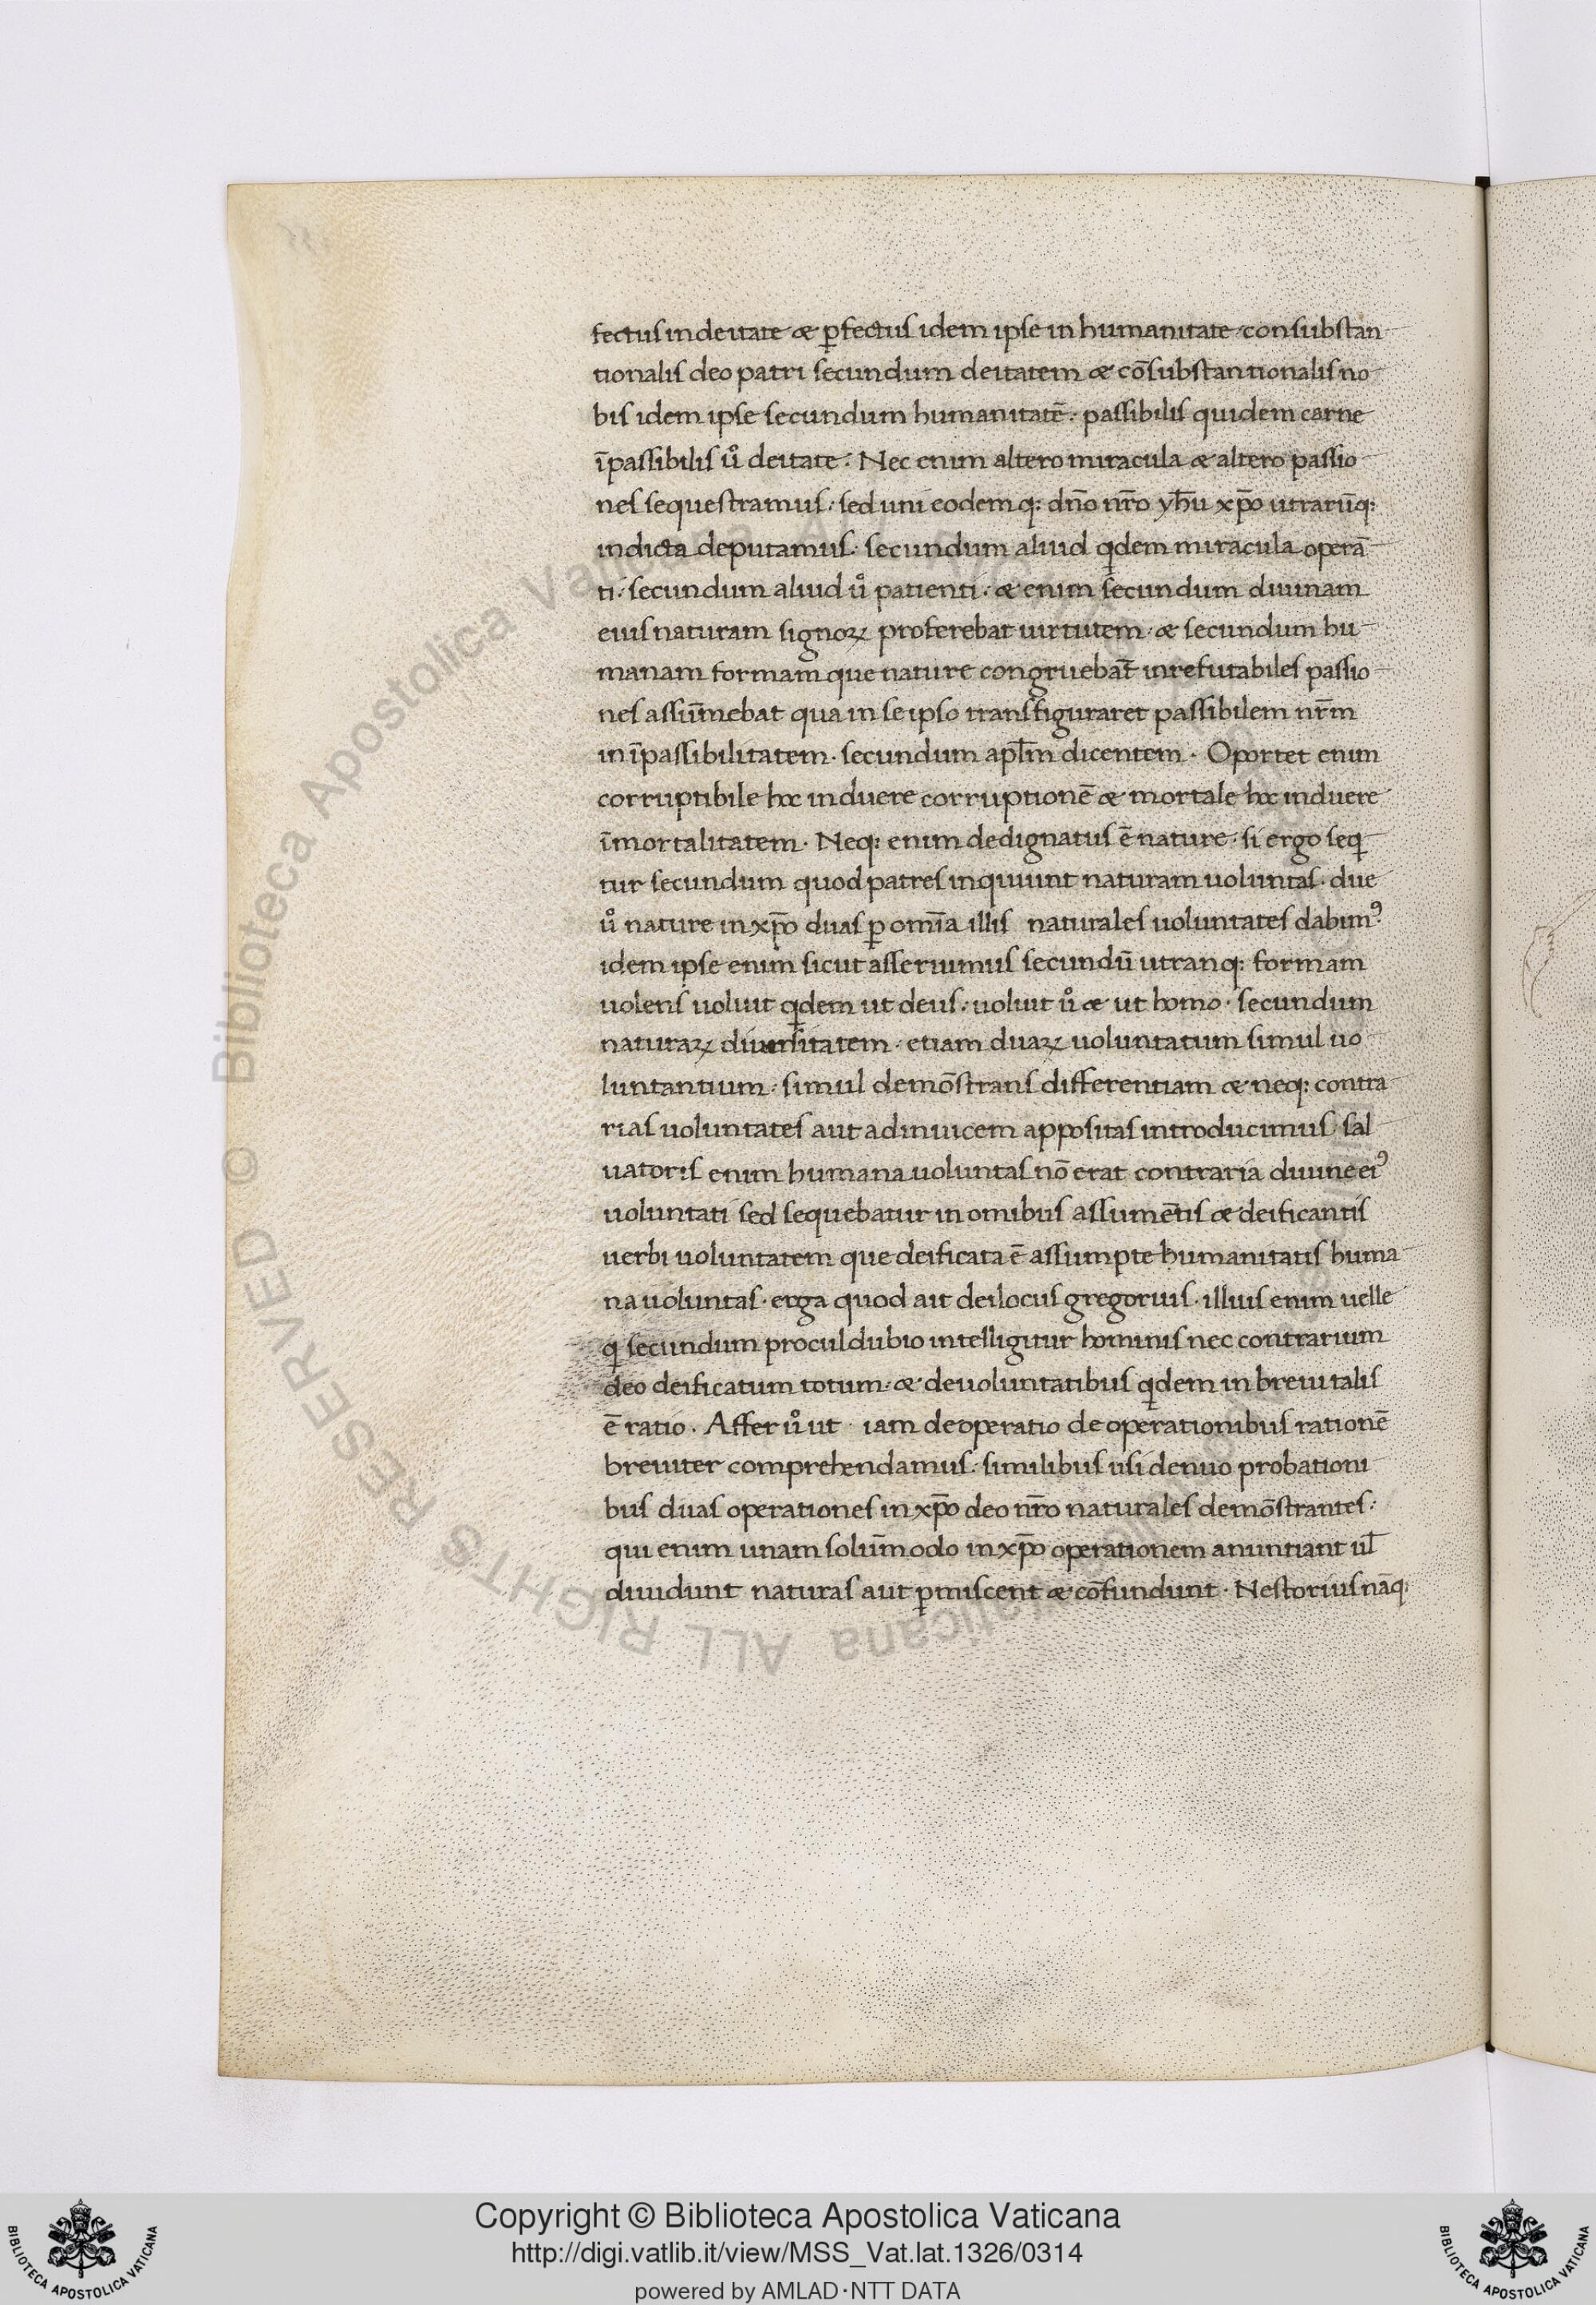 fectus in deitate æ ꝑfectus idem ipse in humanitate · consubstan
tionalis deo patri secundum deitatem æ cōsubstantionalis no
bis idem ipse secundum humanitatē · passibilis quidem carne
īpassibilis ůͦ deitate · Nec enim altero miracula æ altero passio
nes sequestramus · sed uni eodemq; dño nr̄o yh̄u xp̄o utrarūq;
indicta deputamus · secundum aliud qͥdem miracula operā
ti · secundum aliud uͦ patienti · æ enim secundum diuinam
eius naturam signoꝝ proferebat uirtutem · æ secundum hu
manam formam que nature congruebat̄ inrefutabiles passio
nes assūmebat qua in se ipso transfiguraret passibilem nr̄m
in īpassibilitatem · secundum apl̄m dicentem · Oportet enim
corruptibile hoc induere corruptionē æ mortale hoc induere
īmortalitatem · Neq; enim dedignatus ē nature · si ergo seqͥ
tur secundum quod patres inquiunt naturam uoluntas · due
uͦ nature in xp̄o duas ꝑ omīa illis naturales uoluntates dabimꝰ ·
idem ipse enim sicut asseruimus secundū utranq; formam
uolens uoluit qͥdem ut deus · uoluit uͦ æ ut homo · secundum
naturaꝝ diuersitatem · etiam duaꝝ uoluntatum simul uo
luntantium · simul demōstrans differentiam æ neq; contra
rias uoluntates aut adinuicem appositas introducimus · sal
uatoris enim humana uoluntas nō erat contraria diuine eiꝰ
uoluntati sed sequebatur in omibus assumētis æ deificantis
uerbi uoluntatem que deificata ē assumpte humanitatis huma
na uoluntas · erga quod ait deilocus gregorius · illius enim uelle
qͥ secundum proculdubio intelligitur hominis nec contrarium
deo deificatum totum · æ de uoluntatibus qͥdem in breui talis
ē ratio · Affer uͦ ut · iam de operatio de operationibus rationē
breuiter comprehendamus · similibus usi denuo probationi
bus duas operationes in xp̄o deo nr̄o naturales demōstrantes ·
qui enim unam solūmodo in xp̄o operationem anuntiant ul̄
diuidunt naturas aut ꝑmiscent æ cōfundunt · Nestorius nāq;
© Biblioteca Apostolica Vaticana ALL RIGHTS RESERVED
Copyright © Biblioteca Apostolica Vaticana
http://digi.vatlib.it/view/MSS_Vat.lat.1326/0314
powered by AMLAD·NTT DATA
BIBLIOTECA APOSTOLICA VATICANA
BIBLIOTECA APOSTOLICA VATICANA